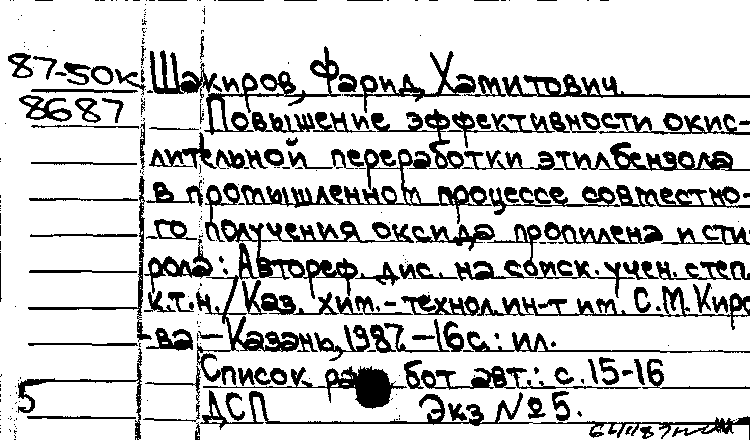 87-50к Шакиров, Фарид Хамитович.
8687 Повышение эффективности окис-
лительной переработки этилбензола
в промышленном процессе совместно-
го получения оксида пропилена и сти-
рола: Автореф. дис. на соиск. учен. степ.
к.т.н. / Каз. хим.-технол. ин-т им. С.М. Киро
-ва - Казань, 1987. - 16 с.: ил.
Список работ авт.: с. 15-16
5 ДСП Экз № 5.